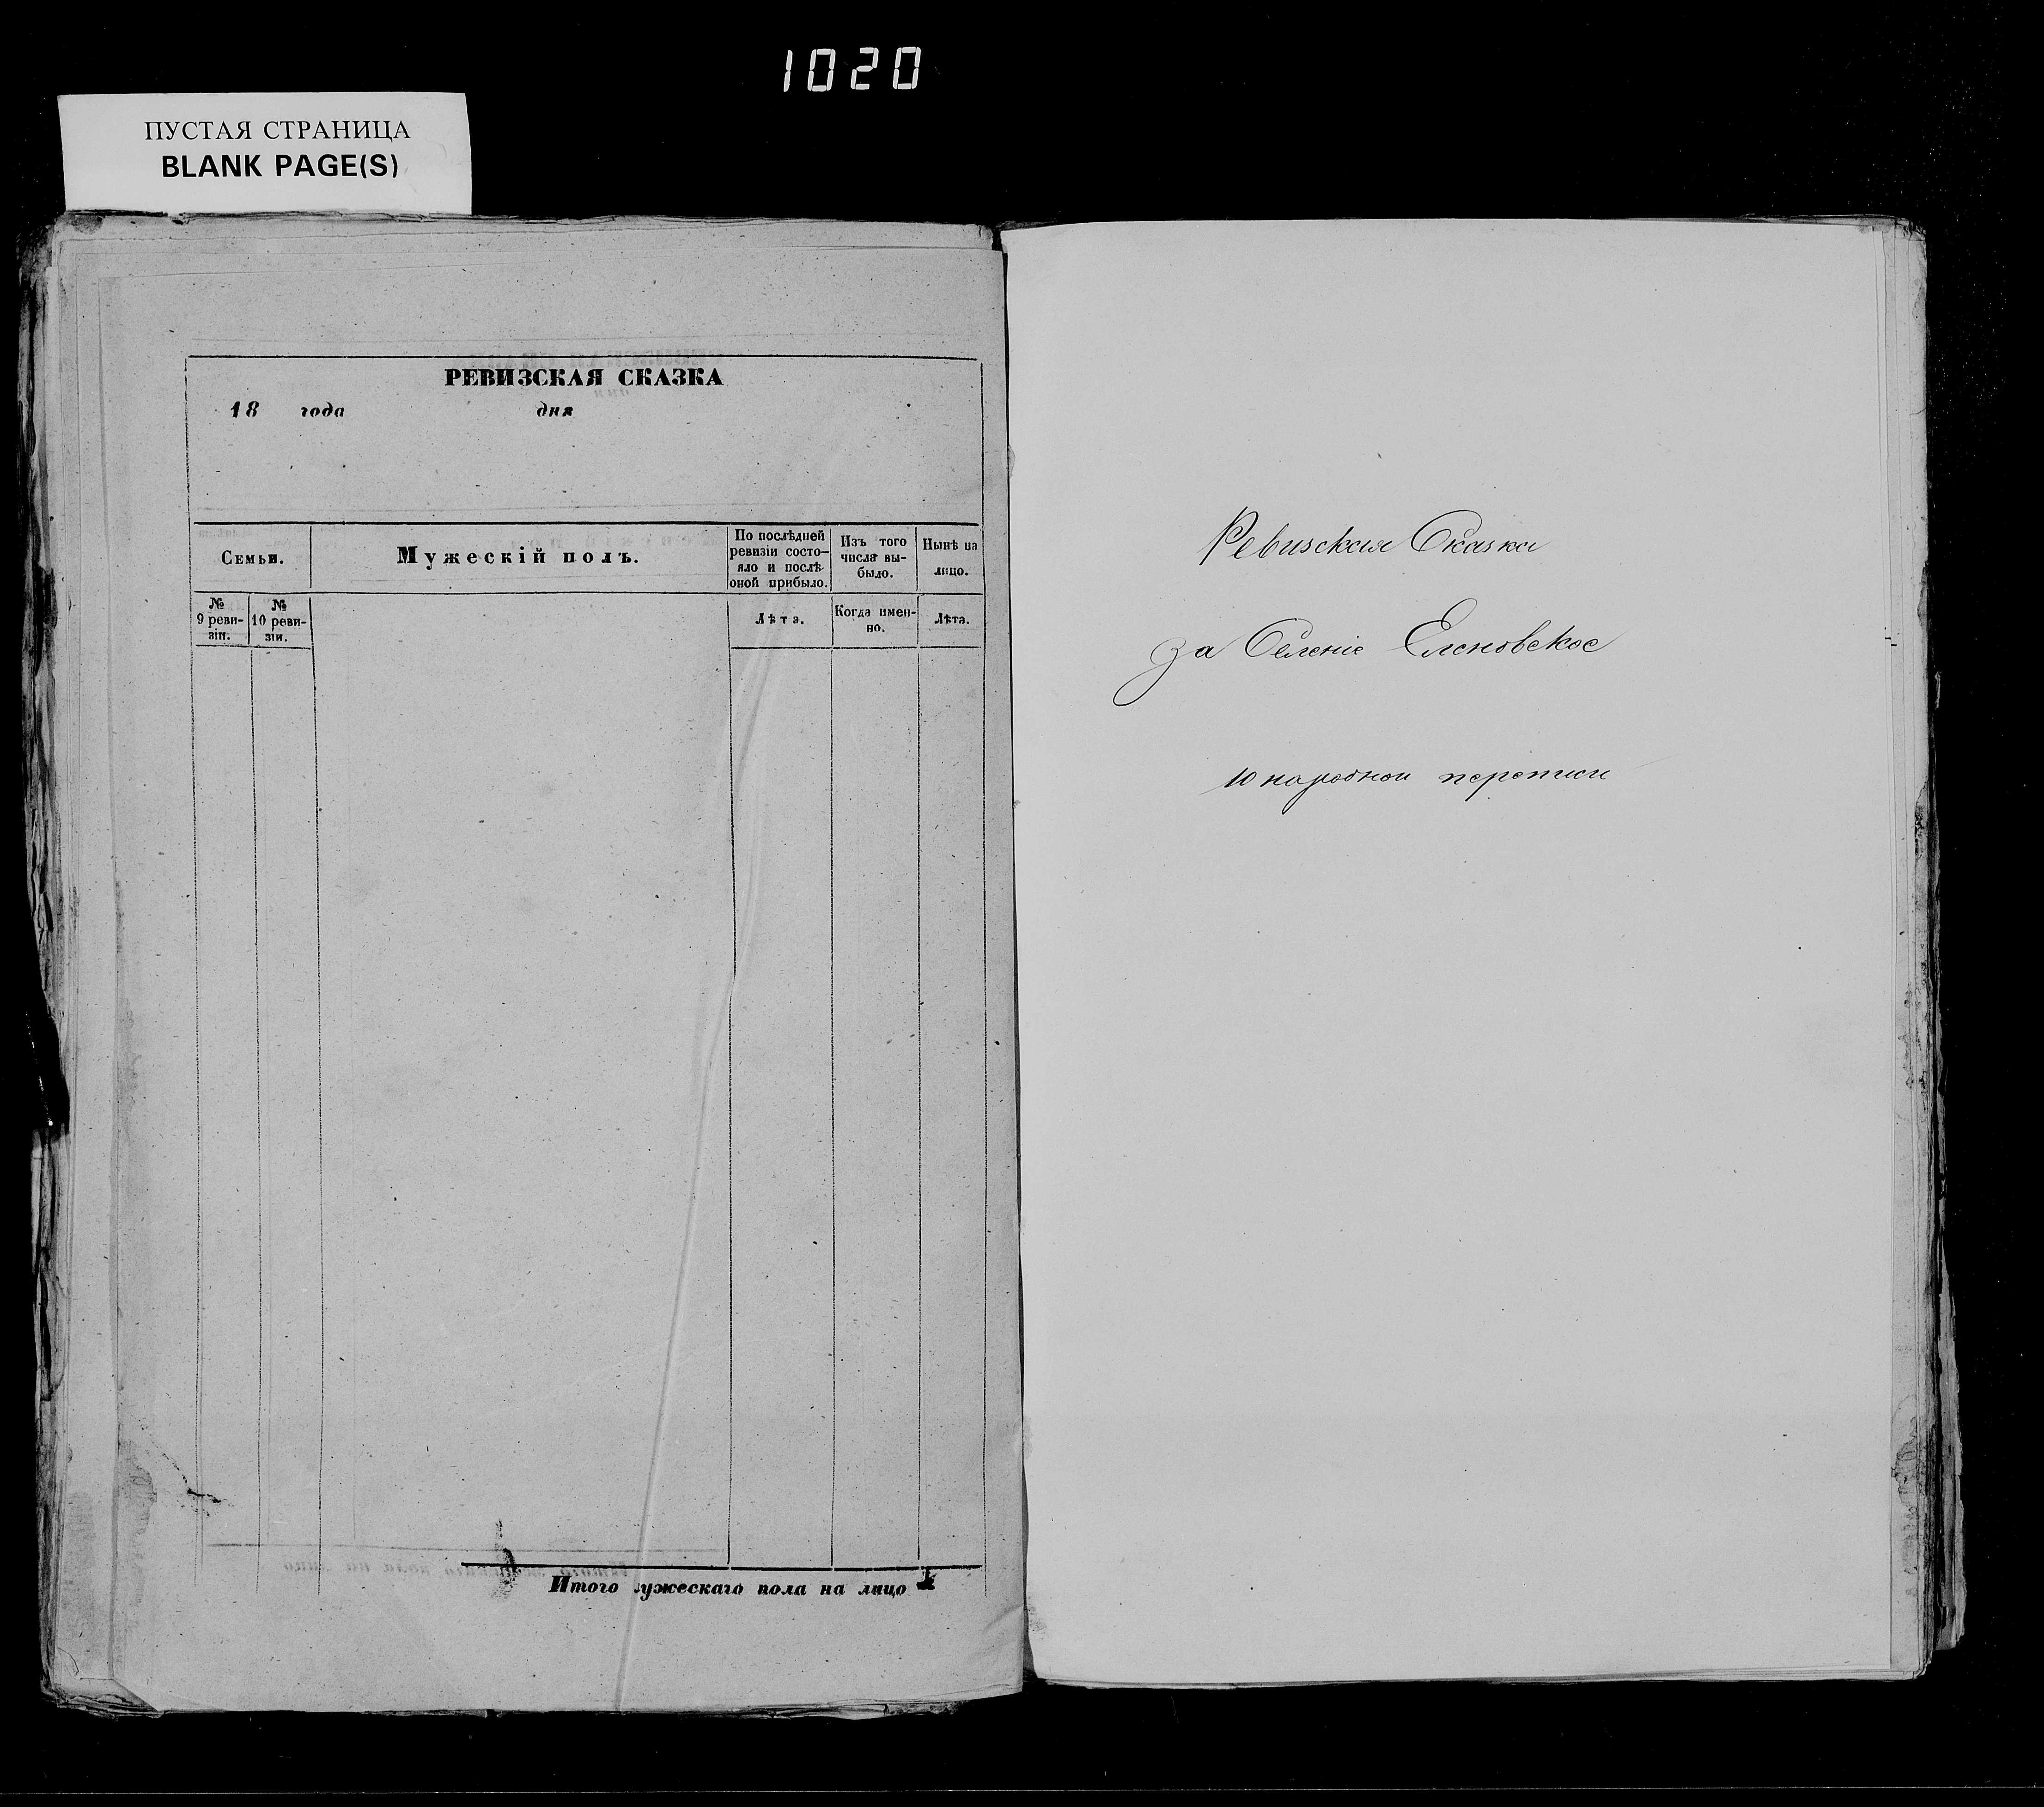 1020
ПУСТАЯ СТРАНИЦА
BLANK PAGE(S)
РЕВИЗСКАЯ СКАЗКА
18 года дня
Семьи.
Мужескій полъ.
По послѣдней
ревизіи состо-
яло и послѣ
оной прибыло.
Изъ того
числа вы-
было.
Нынѣ на
лицо.
№
9 реви-
зіи.
№
10 реви-
зіи.
Лѣта.
Когда имен-
но.
Лѣта.
Итого мужескаго пола на лицо
Ревизская Сказка
За Селеніе Еленовское
10 народной переписи